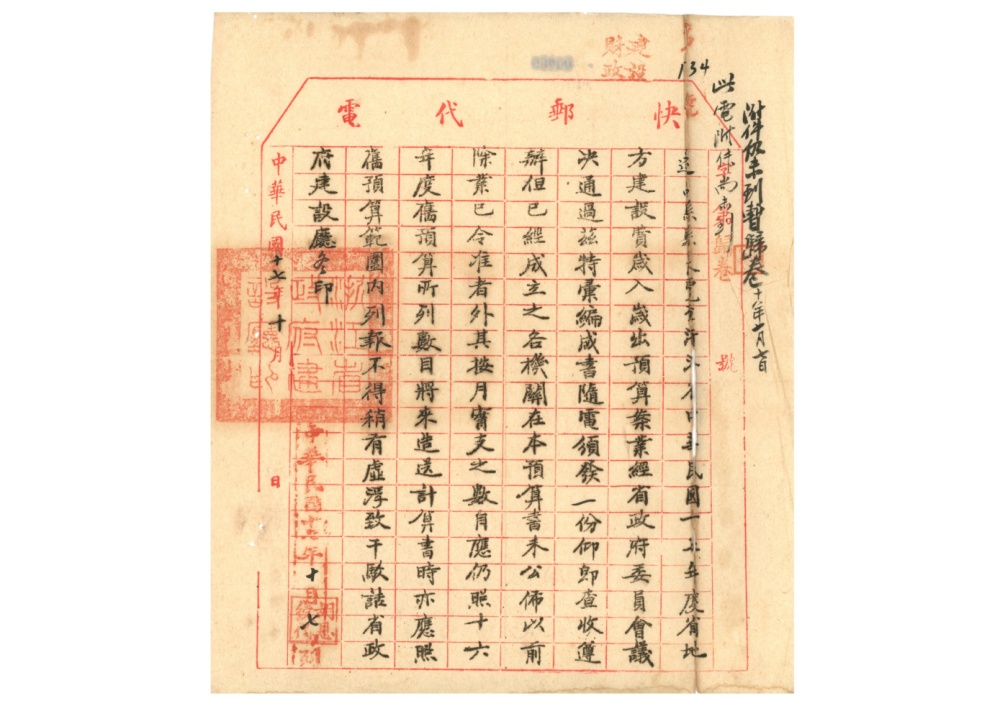 建設
財政
134
號
快郵代電
附件仍未列暫歸卷 十年 月七日
此電附件尚未到
歸卷
號
中華民國一七年度省地
方建設費歲入歲出預算案業經省政府委員會議
決通過茲特彙編成書隨電頒發一份仰即查收遵
辦但已經成立之各機關在本預算書未公佈以前
除業已令准者外其按月實支之數自應仍照十六
年度舊預算所列數目將來造送計算書時亦應照
舊預算範圍內列報不得稍有虛浮致干駁詰省政
府建設廳冬印
中華民國十七年十月 日
浙江省政府建設廳印
中華民國十七年十月七